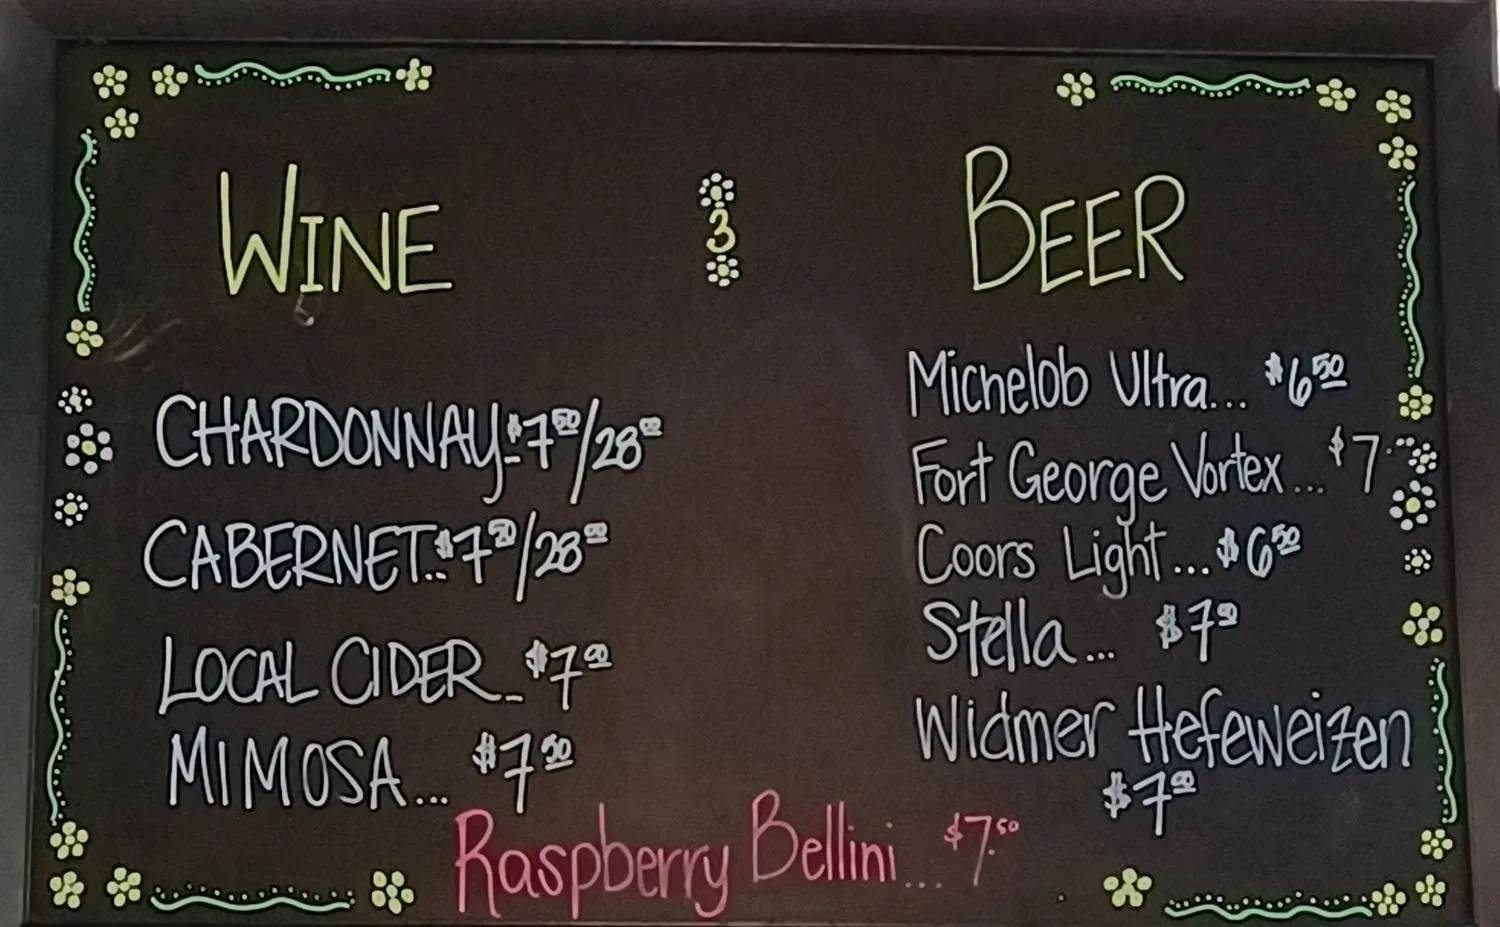 WINE
3
BEER
CHARDONNAY..$7.50/28.00
CABERNET..$7.50/28.00
LOCAL CIDER..$7.00
MIMOSA... $7.50
Michelob Ultra... $6.50
Fort George Vortex... $7.00
Coors Light...$6.50
Stella... $7.00
Widmer Hefeweizen
$7.00
Raspberry Bellini... $7.50